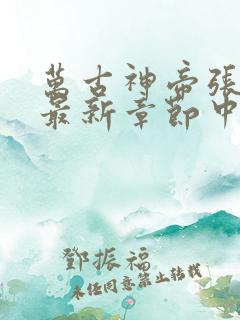 萬古神帝張
最新章節中
鄧振福
未經同意禁止轉載